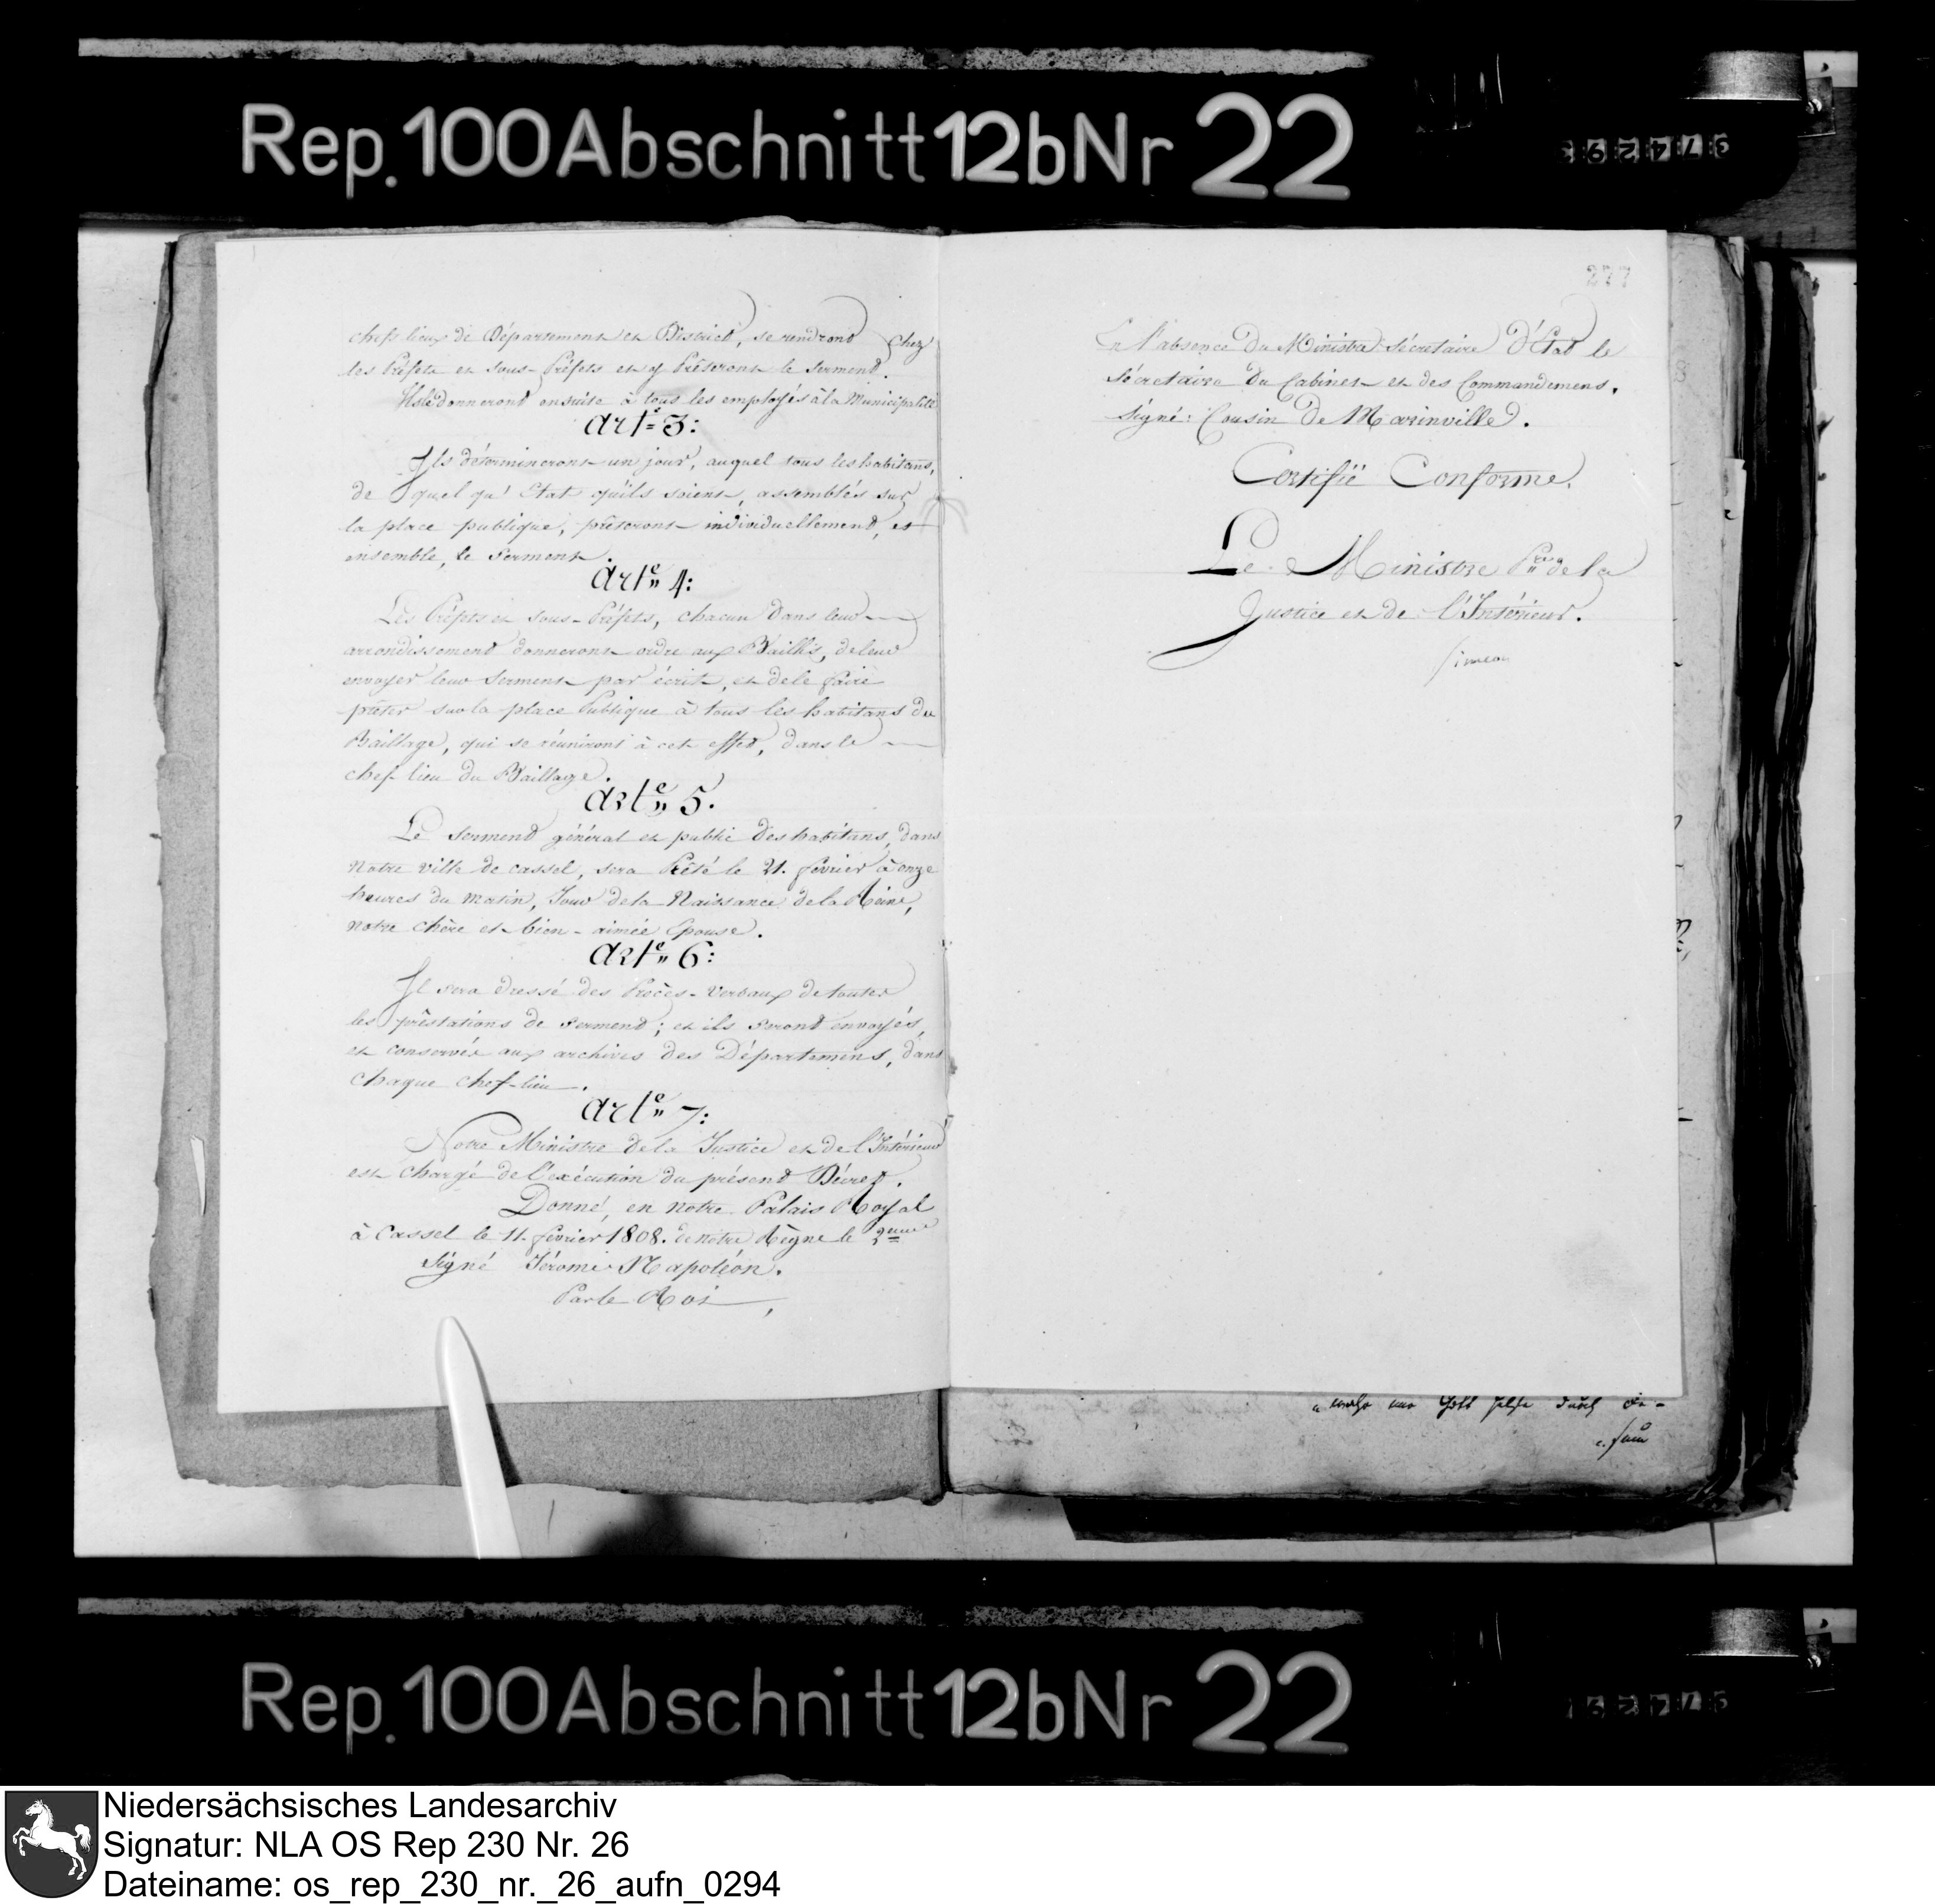 Rep. 100 Abschnitt 12b Nr 22
chefs lieux de Département et District, se rendront chez
les Préfets et sous-Préfets et y Prêteront le Serment.
Ils le donneront ensuite à tous les employés à la Municipalité
Art.e 3:
Ils détermineront un jour, auquel tous les habitans,
de quel qu' Etat qu'ils soient, assemblés sur
la place publique, prêteront individuellement, et
ensemble, le Serment.
Art.e 4:
Les Préfets et sous-Préfets, chacun dans leur
arrondissement donneront ordre aux Baillis, de leur
envoyer leur Serment par écrit, et de le faire
prêter sur la place Publique à tous les habitans du
Baillage, qui se réuniront à cet effet, dans le
chef-lieu du Baillage.
Art.e 5.
Le Serment général et public des habitans, dans
Notre ville de Cassel, sera Prêté le 21. février à onze
heures du matin, Jour de la Naissance de la Reine,
notre chère et bien-aimée Epouse.
Art.e 6:
Il sera dressé des Procès-verbaux de toutes
les prêstations de Serment; et ils Seront envoyés,
et conservés aux archives des Départemens, dans
chaque chef-lieu.
Art.e 7:
Notre Ministre de la Justice et de l'Intérieur
est Chargé de l'exécution du présent Décret.
Donné, en notre Palais Royal
à Cassel le 11. février 1808. de notre Règne le 2eme
Signé Jérome Napoléon.
Par le Roi,
277
En l'absence du Ministre Sécretaire d'État le
Sécretaire du Cabinet et des Commandemens.
Signé: Cousin de Marinville.
Certifié Conforme.
Le Ministre Pre de la
Justice et de l'Intérieur.
Simeon
Gott helfe durch
Rep. 100 Abschnitt 12b Nr 22
Niedersächsisches Landesarchiv
Signatur: NLA OS Rep 230 Nr. 26
Dateiname: os_rep_230_nr._26_aufn_0294